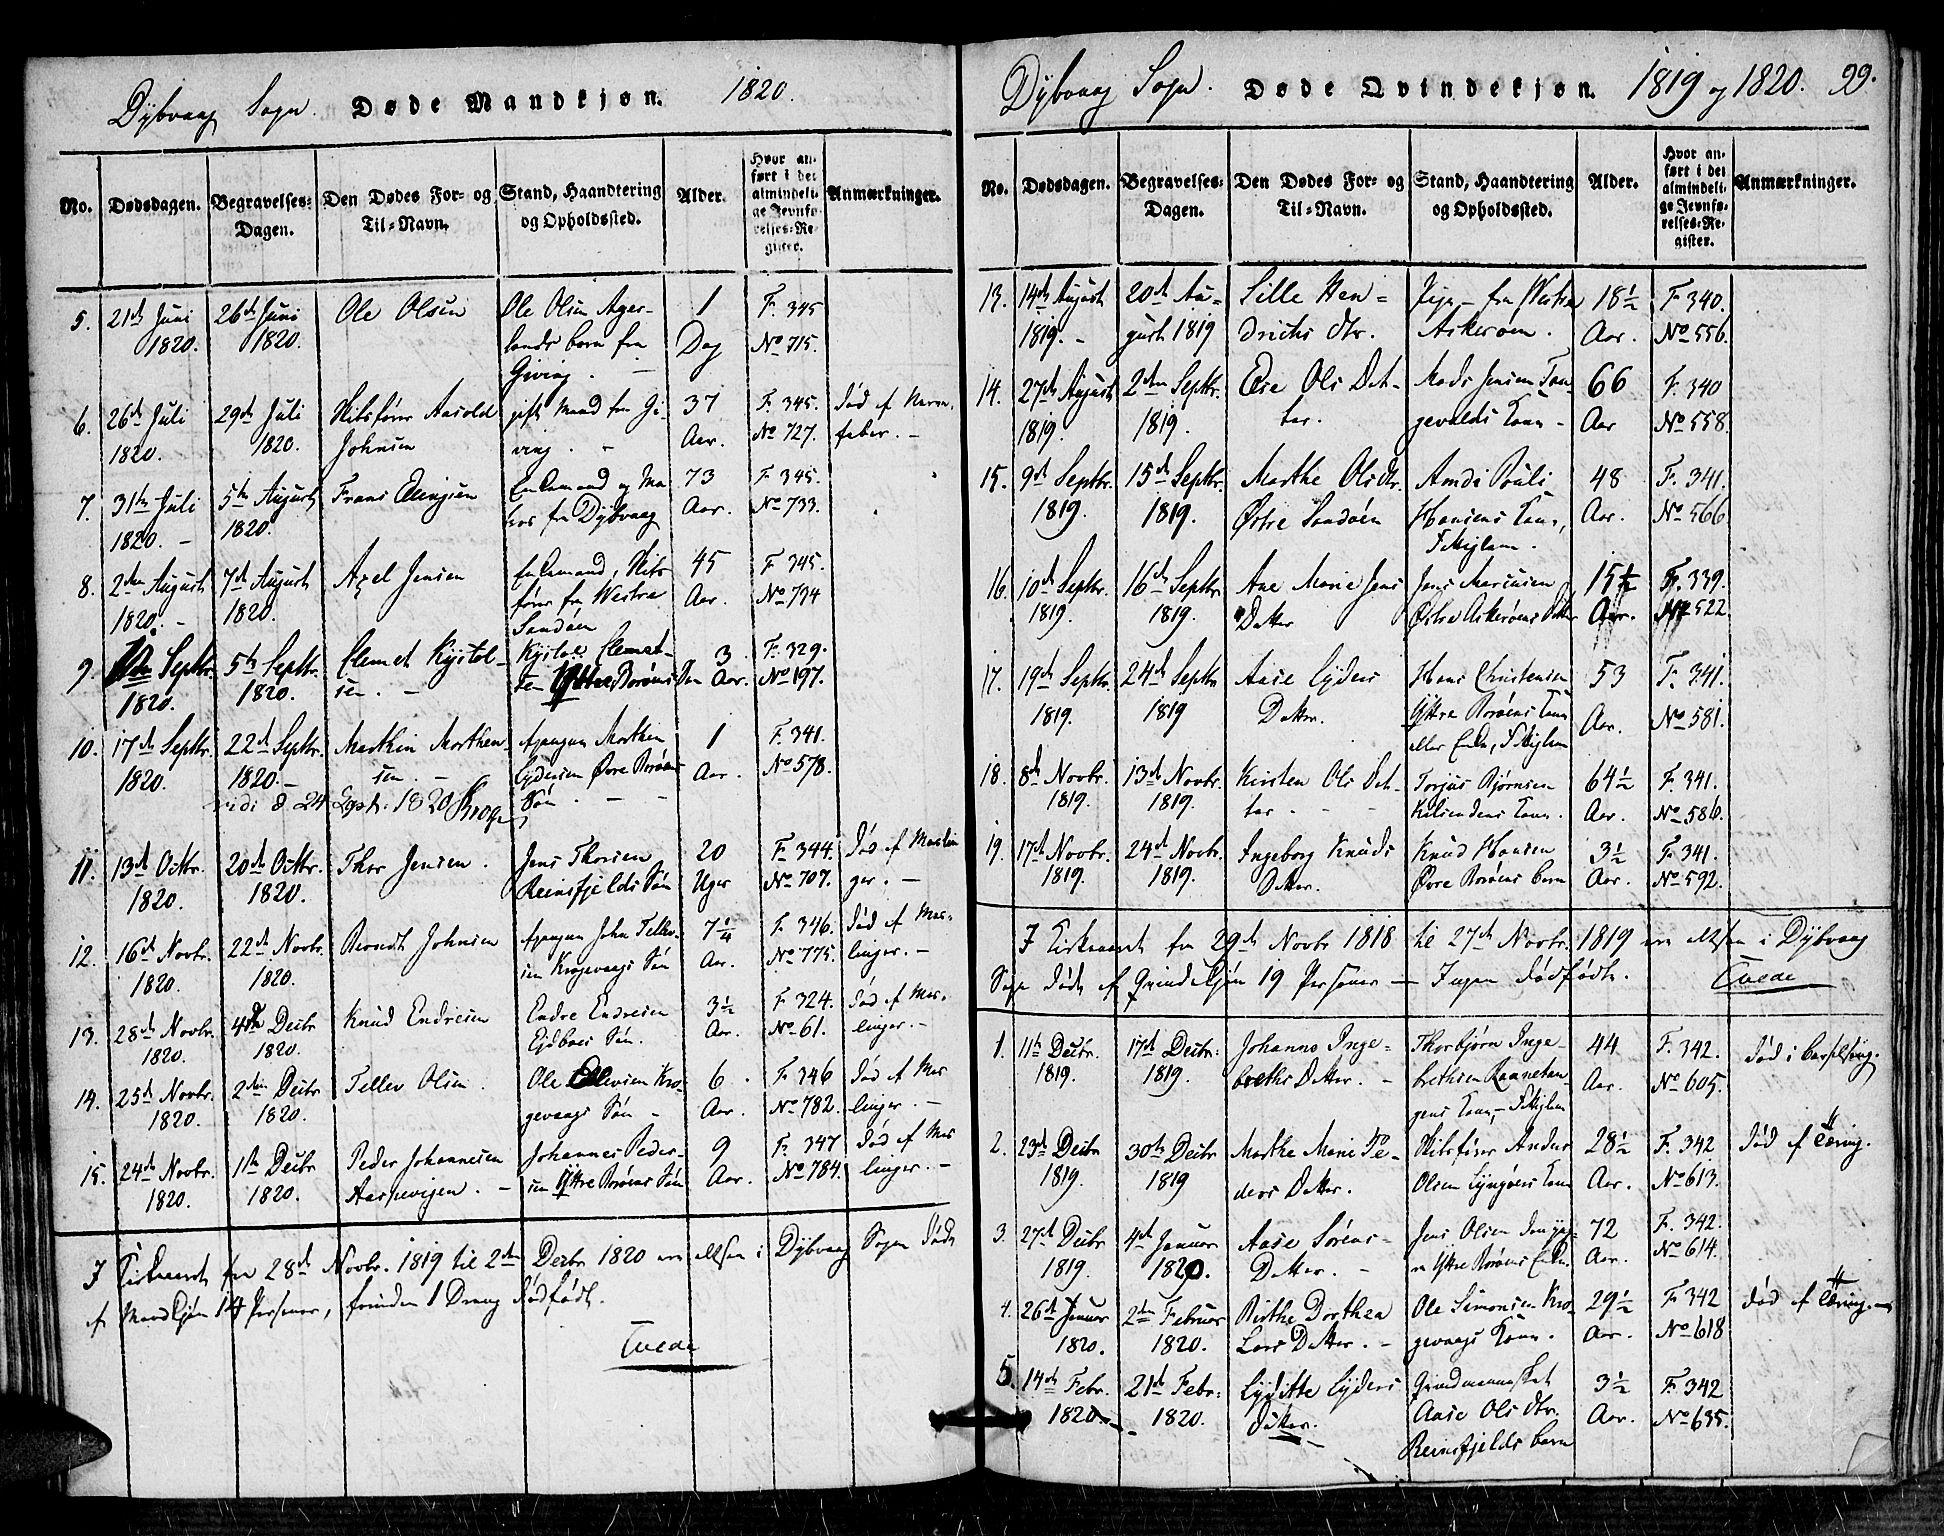 Dybvaag Sogn. Døde Mandkjøn. 1820.
No. Dødsdagen. Begravelses-Dagen. Den Dødes For- og Til-Navn. Stand, Haandtering og Opholdssted. Alder. Hvor anført i det almindelige Jevnførelses-Register. Anmærkninger.
5. 21de Juni 26de Juni Ole Olsen Ole Olsen Ager- 1 F. 345
1820. 1820. lands barn fra Dag No 715.
Giving.
6. 26de Juli 29de Juli Skibsfører Aasold gift Mand fra Gi- 37 F. 345. død af Nerve-
1820. 1820. Johnsen ving. Aar. No 727. feber.
7. 31te Juli 5te August Frans Enkemand og 73 F. 345.
1820. 1820. fra Dybvaag Aar. No 733.
8. 2den August 7de August Axel Jensen Enkemand, Skibs- 45 F 345.
1820. 1820. fører fra Westra Aar. No 734
Sandøen
9. Septbr. 5te Septbr. Clemet Kystol- Kystol Clemet- 3 F. 329.
1820. 1820. sen. sen Yttre Borøens Aar. No 197.
10. 17de Septbr. 22de Septbr. Morthen- Morthen 1 F. 341.
1820. 1820. sen. Lydersen Øvre Borøens Aar. No 578.
vidi d 24 Septr: 1820 Krog Søn.
11. 13de Octbr. 20de Octbr. Thor Jensen. Jens Thorsen 20 F. 344. død af Meslin
1820. 1820. Reinsfjelds Søn Uger No 707. ger.
12. 16de Novbr. 22de Novbr. Berendt Johnsen John Tellev- 7¼ F. 346. død af Mes-
1820. 1820. sen Krogevaags Søn Aar. No 775. linger.
13. 28de Novbr. 4de Decbr Knud Endresen Endre Endresen 3½ F. 324. død af Mes-
1820. 1820. Eidboes Søn. Aar. No 61. linger.
14. 25de Novbr. 2den Decbr Tellev Olsen. Ole Kro- 6 F 346 død af Mes
1820. 1820. gevaags Søn Aar. No 782. linger.
15. 24de Novbr. 1ste Decbr Peder Johannesen Johannes Peder- 9 F. 347 død af Mes
1820. 1820. Aaspevigen. sen Yttre Borøens Søn Aar. No 784. linger.
I Kirkeaaret fra 28de Novbr. 1819 til 2den Decbr 1820 ere altsaa i Dybvaag Sogn døde
af Mandkjøn 14 Personer, foruden 1 Dreng dødfødt.
Tvede
Dybvaag Sogn. Døde Qvindekjøn. 1819 og 1820. 99.
No. Dødsdagen. Begravelses-Dagen. Den Dødes For- og Til-Navn. Stand, Haandtering og Opholdssted. Alder. Hvor anført i det almindelige Jevnførelses-Register. Anmærkninger.
13. 14de August 20de Au- Sille Hen- Pige fra Westra 18½ F. 340.
1819. gust 1819 drichs dtr. Askerøen. Aar. No 556.
14. 27de August 2den Septbr. Else Ols Dat- Mads Jensen Tan- 66 F. 340
1819. 1819. ter. gevalds Kone Aar No 558.
15. 9de Septbr. 15de Septbr. Marthe Olsdtr. Povli 48 F. 341.
1819. 1819. Østre Sandøen Hansens Kone, Aar. No 566
16. 10de Septbr. 16de Septbr. Ane Marie Jens Jens Marcusen 15½ F. 339.
1819. 1819. Datter Østre Askerøens Datter Aar. No 522.
17. 19de Septbr. 24de Septbr Aase Lyders Hans Christensen 53 F. 341.
1819. 1819 Datter. Yttre Borøens Kone Aar. No 581.
18. 8de Novbr. 13de Novbr. Kirsten Ols Dat- Torjus Bjørnsen 64½ F. 341.
1819. 1819. ter Kilsendens Kone. Aar. No 586.
19. 17de Novbr. 24de Novbr. Ingeborg Knuds Knud Hansen 3½ F. 341.
1819. 1819. Datter. Øvre Borøens barn Aar. No 592.
I Kirkeaaret fra 29de Novbr 1818 til 27de Novbr. 1819 ere altsaa i Dybvaag
Sogn døde af Qvindekjøn 19 Personer — Ingen dødfødt.
Tvede
1. 11te Decbr. 17de Decbr. Johanne Inge- Thorbjørn Inge- 44 F. 342. død i Barselseng.
1819. 1819. breths Datter. brethsen Aar. No 605.
gens Kone
2. 23de Decbr 30te Decbr Marthe Marie Pe- Skibsfører Anders 28½ F. 342 død af Tæring.
1819. 1819 ders Datter. Olsen Lyngøens Kone Aar. No 613.
3. 27de Decbr 4de Januar Aase Sørens- Jens Olsen den yng- 72 F. 342.
1819. 1820. Datter. re Yttre Borøens Enke. Aar. No 614.
4. 26de Januar 2den Februar Birthe Dorthea Ole Simonsen Kro- 29½ F. 342 død af Tæring.
1820. 1820. Lars Datter. gevaags Kone. Aar. No 618
5. 14de Febr. 21de Febr. Lyditte Lyders 3½ F. 342
1820. 1820. Datter. Aase Ols dtr. Aar. No 635.
Reinsfjelds barn